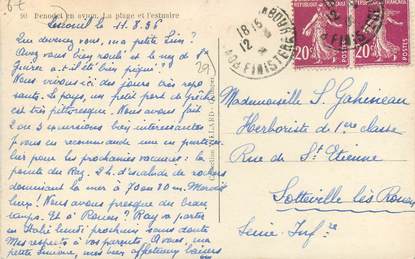 90 Penodet en avon. La plage et l'estuaire
le 11.8.36
Que devenez vous, ma petite
Avez vous bien roulé et le nez de
a-t-il été bien piqué ?
Nous vivons ici des jours très repo
sants. Le pays, un petit port de pêche
est très pittoresque. Nous avons fait
2 ou 3 excursions bien intéressantes
Je vous en recommande une en particu
lier pour les prochaines vacances : la
pointe du Raz. 2 h. d'escalade de rochers
dominant la mer à 70 ou 80 m.
Nous avons presque du beau
temps. Et à Rouen ? Ray va partir
en Italie lundi prochain sans doute
Mes respects à vos parents. A vous, ma
petite Simone, mes bien affectueux baisers
29
67
Collection VILLARD
18 15
12
FINISTERE
20
20
Mademoiselle S. Gahineau
Herboriste de 1ère classe
Rue de St Etienne
Sotteville lès Rouen
Seine Infre